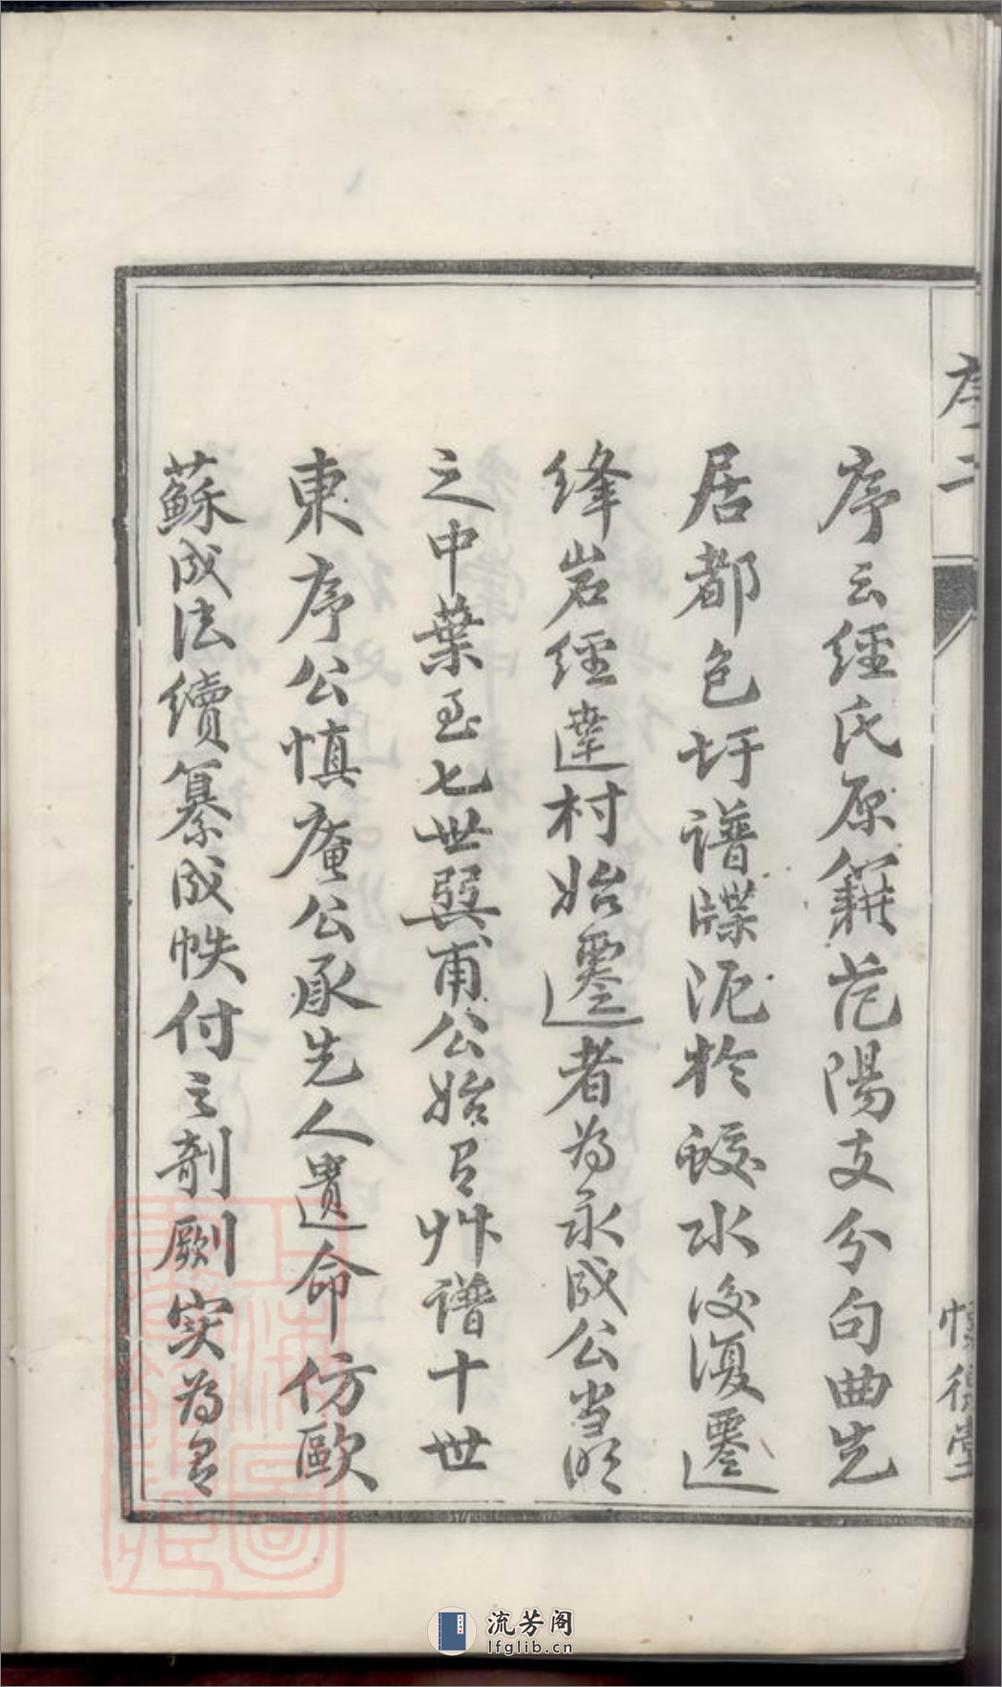 序云經氏原籍范陽支分句曲先
居都邑圩譜牒沉於蛟水後復遷
絳岩經達村始遷者為永成公當明
之中葉至七世巽甫公始有艸譜十世
東序公慎庵公承先人遺命仿歐
蘇成法續纂成帙付之剞劂实為有
序二
懷德堂
流芳阁
lfglib.cn